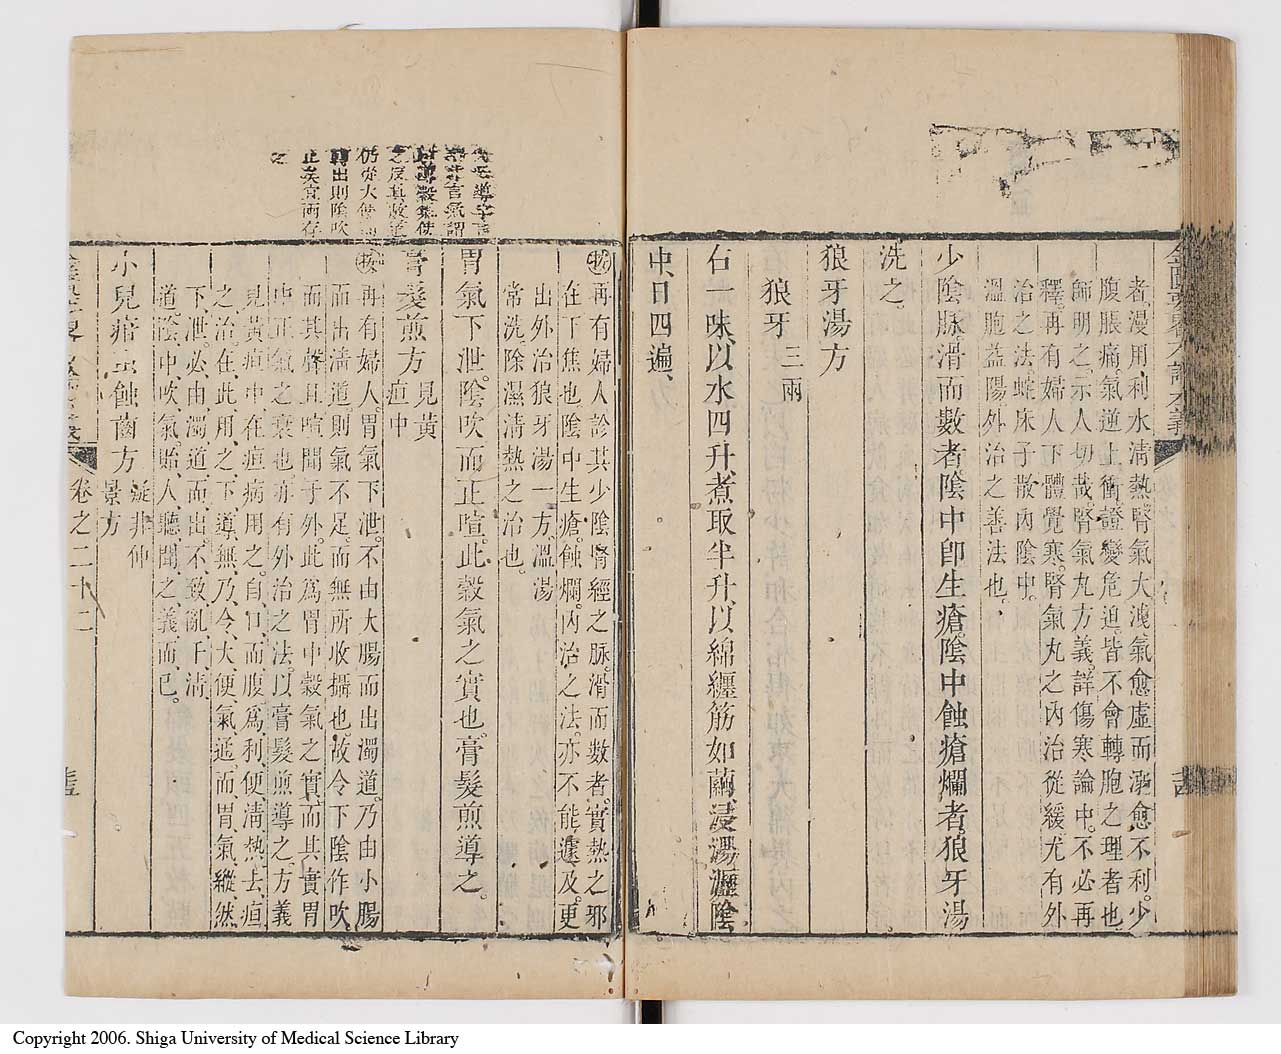 者漫用利水淸熱腎氣大洩氣愈虛而溺愈不利少
腹脹痛氣逆上衝證變危迫皆不會轉胞之理者也
師明之示人切哉腎氣丸方義詳傷寒論中不必再
釋再有婦人下體覺寒腎氣丸之內治從緩尤有外
治之法蛇床子散內陰中
溫胞益陽外治之善法也
少陰脉滑而數者陰中卽生瘡陰中蝕瘡爛者狼牙湯
洗之
狼牙湯方
狼牙三兩
右一味以水四升煮取半升以綿纏筋如繭浸湯瀝陰
中日四遍
按再有婦人診其少陰腎經之脉滑而數者實熱之邪
在下焦也陰中生瘡蝕爛內治之法亦不能遽及更
出外治狼牙湯一方溫湯
常洗除濕淸熱之治也
胃氣下泄陰吹而正喧此穀氣之實也膏髮煎導之
膏髮煎方 見黃疸中
按再有婦人胃氣下泄不由大腸而出濁道乃由小腸
而出淸道則氣不足而無所收攝也故令下陰作吹
而其聲且喧聞于外此爲胃中穀氣之實而其實胃
中正氣之衰也亦有外治之法以膏髮煎導之方義
見黃疸中在疸病用之自口而腹爲利便淸熱去疸
之治在此用之下導無乃令大便氣遥而胃氣縱然
下泄必由濁道而出不致亂于淸
道陰中吹氣貽人聽聞之義而已
小兒疳虫蝕齒方 疑非仲景方
卷之二十二
仍從大便
轉出則陰吹
止矣宜兩存
之
Copyright 2006. Shiga University of Medical Science Library